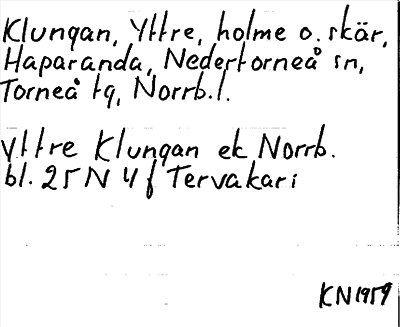 Klungan, Yttre, holme o. skär,
Haparanda, Nedertorneå sn,
Torneå tg, Norrb.l.
yttre Klungan ek Norrb.
bl. 25 N 4 f Tervakari
KN1959